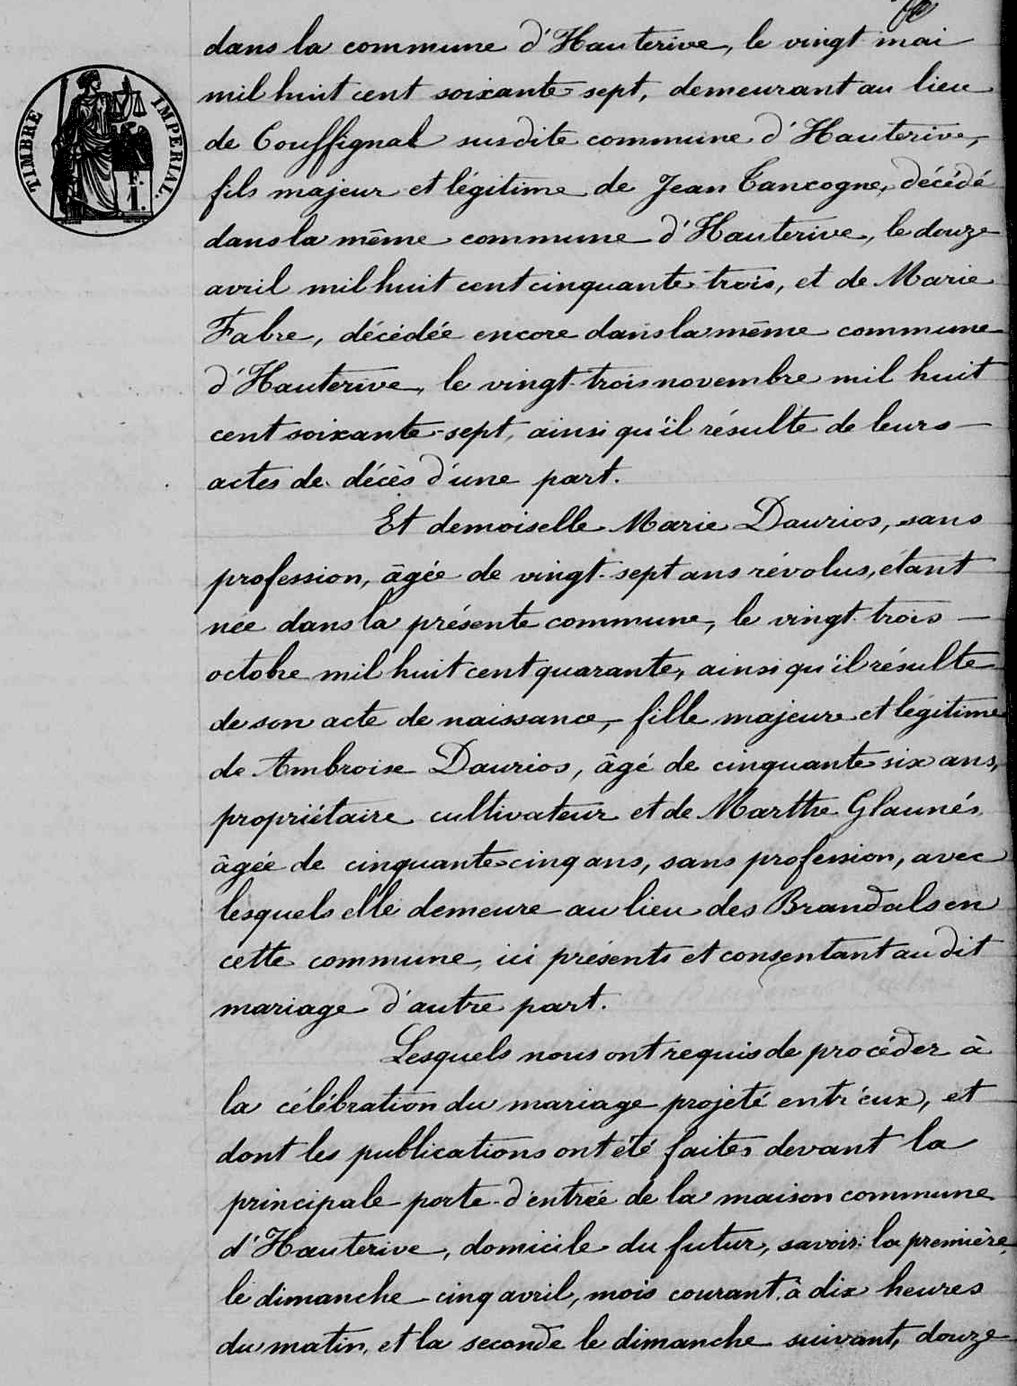 dans la commune d'Hauterive, le vingt mai
mil huit cent soixante sept, demeurant au lieu
de Couffignal susdite commune d'Hauterive,
fils majeur et légitime de Jean Cancogne, décédé
dans la même commune d'Hauterive, le douze
avril mil huit cent cinquante trois, et de Marie
Fabre, décédée encore dans la même commune
d'Hauterive, le vingt-trois novembre mil huit
cent soixante-sept, ainsi qu'il résulte de leurs
actes de décès d'une part.
Et demoiselle Marie Daurios, sans
profession, âgée de vingt-sept ans révolus, étant
née dans la présente commune, le vingt trois
octobre mil huit cent quarante, ainsi qu'il résulte
de son acte de naissance, fille majeure et légitime
de Ambroise Daurios, âgé de cinquante six ans,
propriétaire cultivateur et de Marthe Glaunés
âgée de cinquante cinq ans, sans profession, avec
lesquels elle demeure au lieu des Brandals en
cette commune, ici présents et consentant au dit
mariage d'autre part.
Lesquels nous ont requis de procéder à
la célébration du mariage projeté entr'eux, et
dont les publications ont été faites devant la
principale porte d'entrée de la maison commune
d'Hauterive, domicile du futur, savoir: la première,
le dimanche cinq avril, mois courant à dix heures
du matin, et la seconde le dimanche suivant, douze
TIMBRE IMPERIAL.
1f.